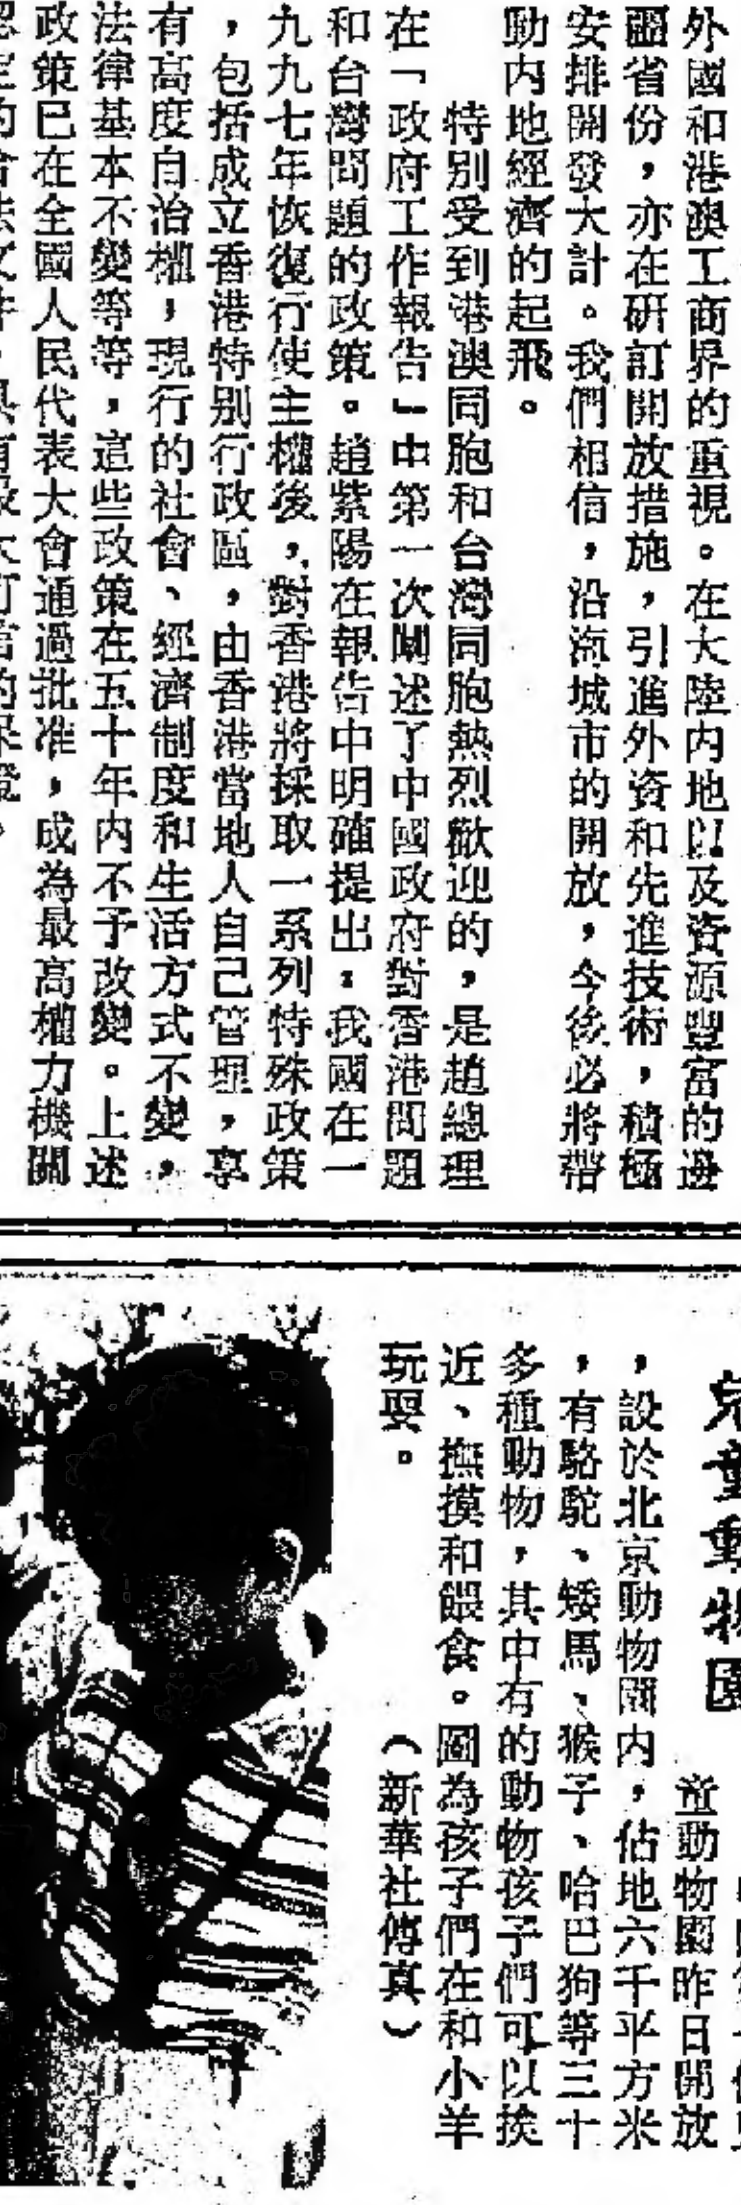 外國和港澳工商界的重視。在大陸內地以及資源豐富的邊
疆省份，亦在研訂開放措施，引進外資和先進技術，積極
安排開發大計。我們相信，沿海城市的開放，今後必將帶
動內地經濟的起飛。
特別受到港澳同胞和台灣同胞熱烈歡迎的，是趙總理
在「政府工作報告」中第一次闡述了中國政府對香港問題
和台灣問題的政策。趙紫陽在報告中明確提出：我國在一
九九七年恢復行使主權後，對香港將採取一系列特殊政策
，包括成立香港特別行政區，由香港當地人自己管理，享
有高度自治權，現行的社會、經濟制度和生活方式不變，
法律基本不變等等，這些政策在五十年內不予改變。上述
政策已在全國人民代表大會通過批准，成為最高權力機關
兒童動物園
童動物園昨日開放
，設於北京動物園內，佔地六千平方米
，有駱駝、矮馬、猴子、哈巴狗等三十
多種動物，其中有的動物孩子們可以挨
近、撫摸和餵食。圖為孩子們在和小羊
玩耍。（新華社傳真）